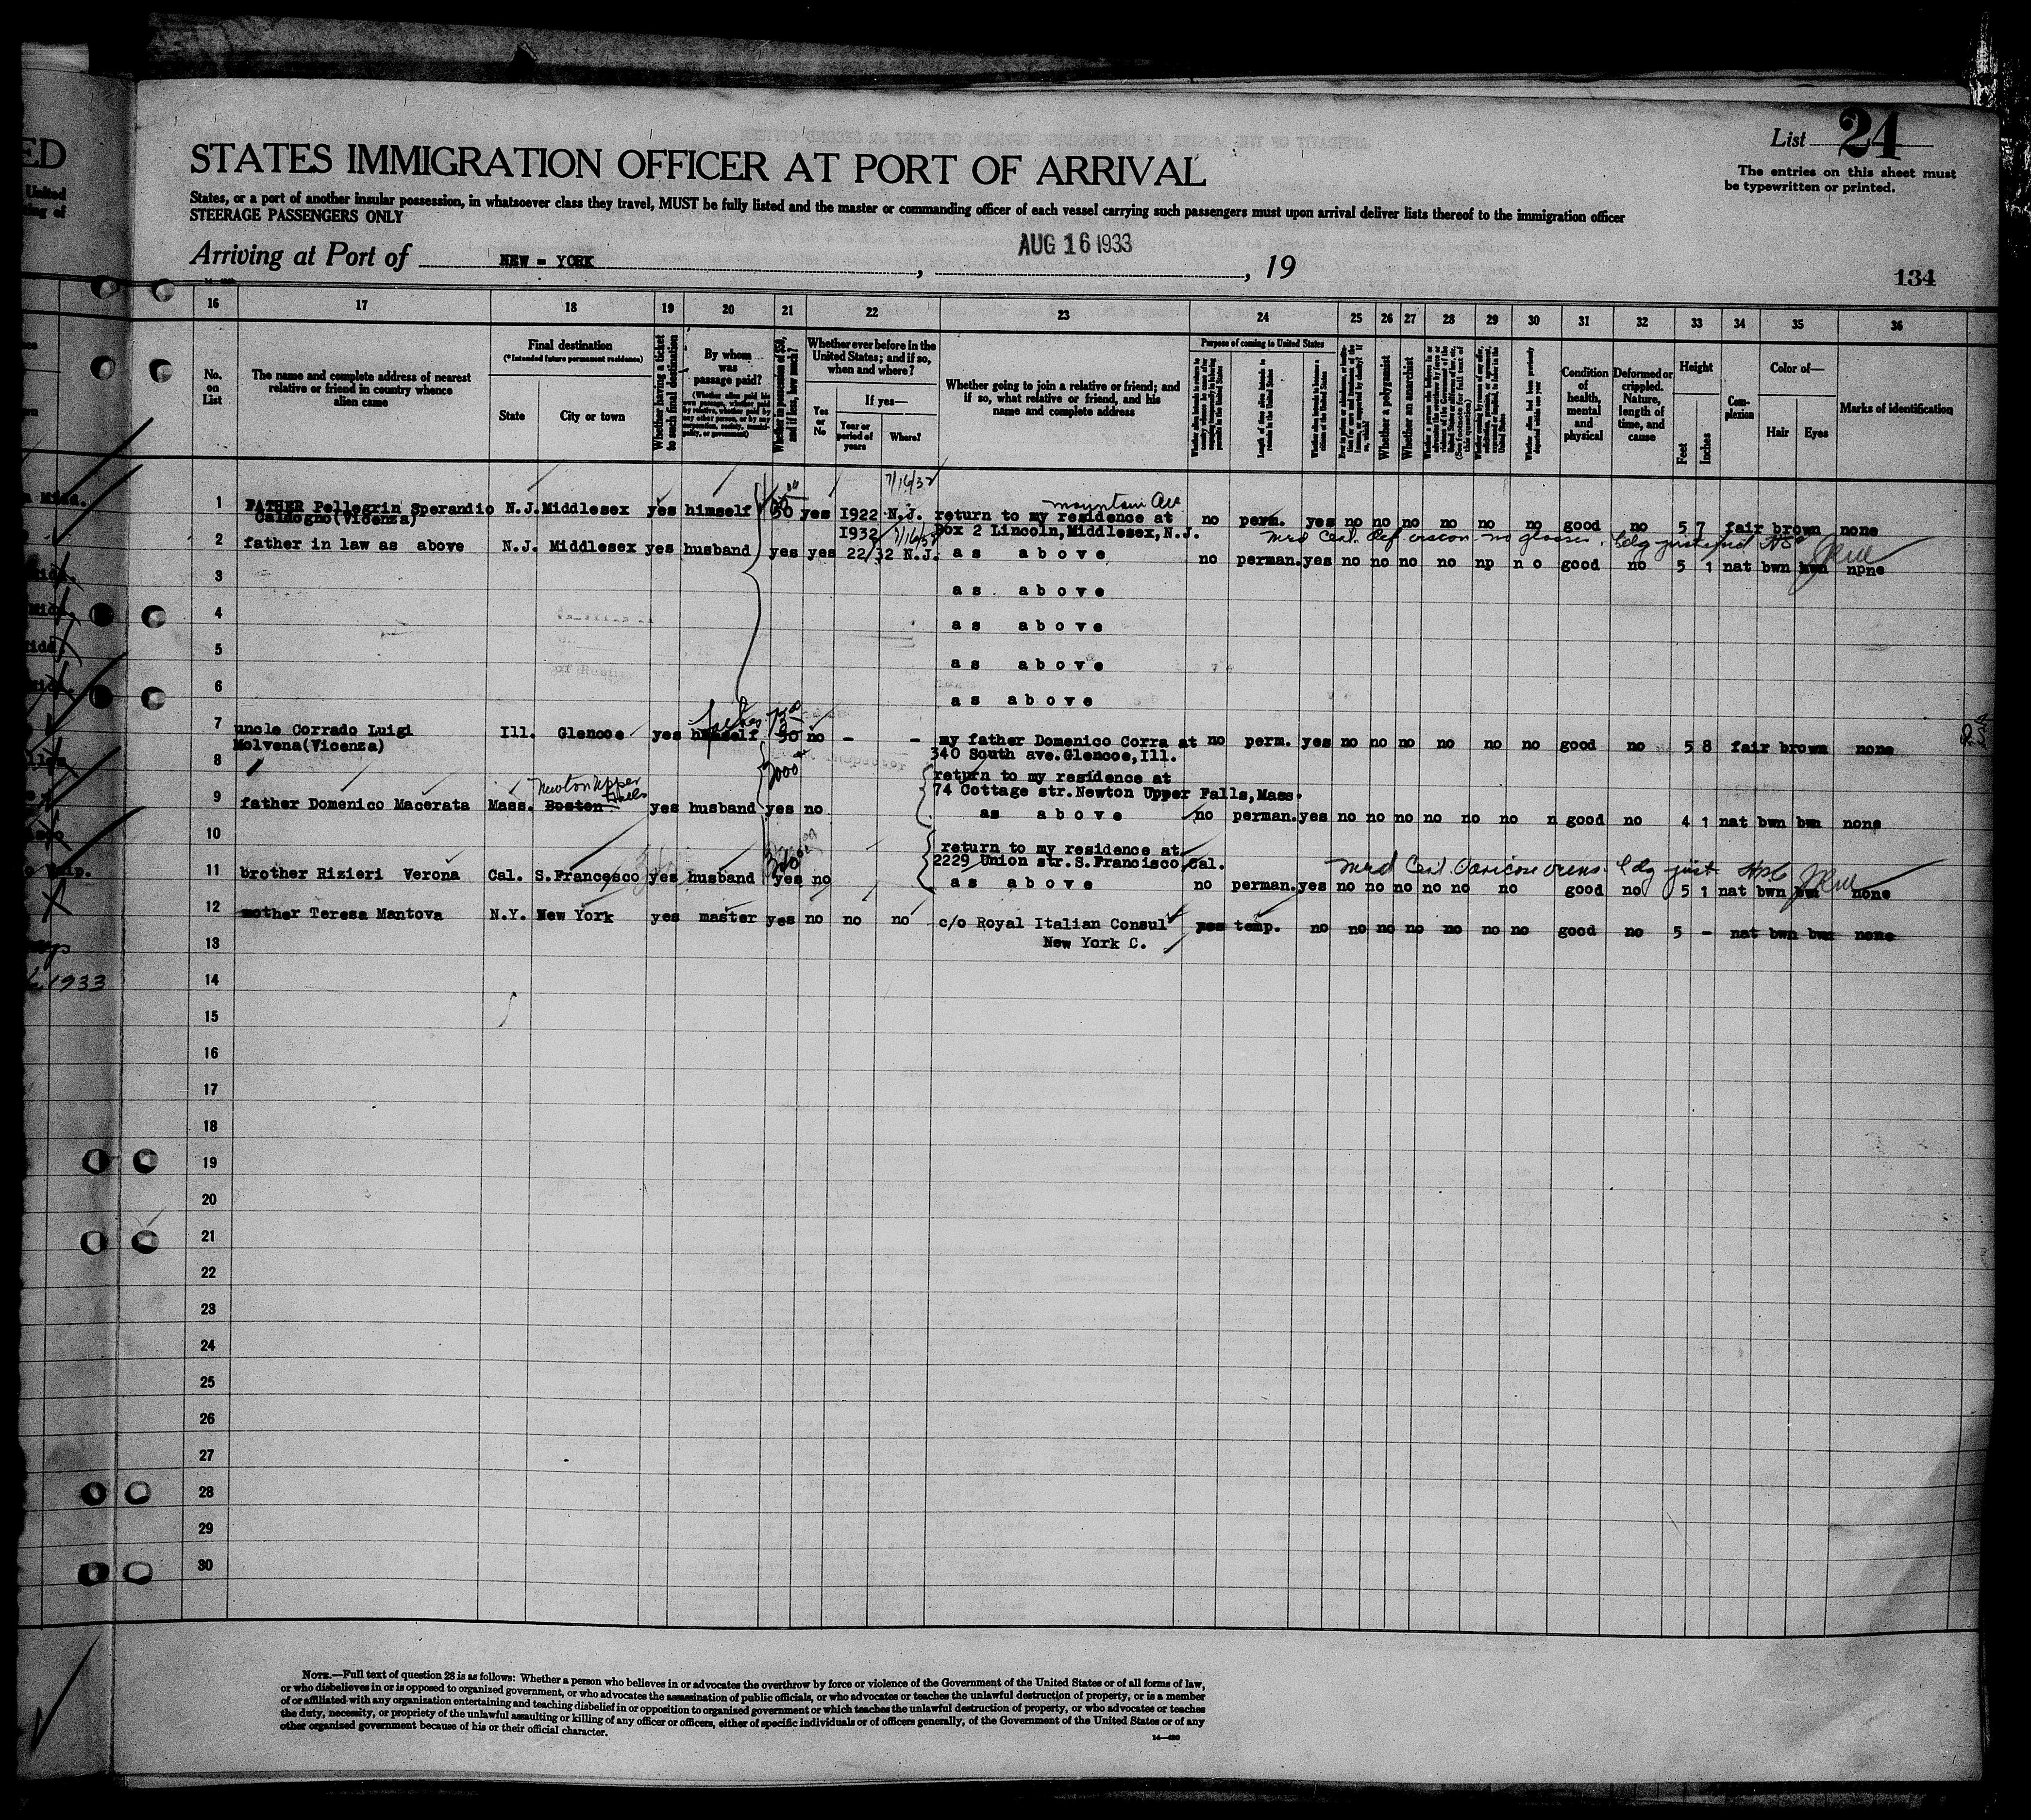 ED
United
ing of
List 24
The entries on this sheet must
be typewritten or printed.
STATES IMMIGRATION OFFICER AT PORT OF ARRIVAL
States, or a port of another insular possession, in whatsoever class they travel, MUST be fully listed and the master or commanding officer of each vessel carrying such passengers must upon arrival deliver lists thereof to the immigration officer
STEERAGE PASSENGERS ONLY
Arriving at Port of NEW = YORK, AUG 16 1933, 19
134
16 17 18 19 20 21 22 23 24 25 26 27 28 29 30 31 32 33 34 35 36
No. on List
The name and complete address of nearest relative or friend in country whence alien came
Final destination
(*Intended future permanent residence)
State
City or town
Whether having a ticket to such final destination
By whom was passage paid?
(Whether alien paid his own passage, whether paid by relative, whether paid by any other person, or by any corporation, society, municipality, or government)
Whether in possession of $50, and if less, how much?
Whether ever before in the United States; and if so, when and where?
Yes or No
If yes—
Year or period of years
Where?
Whether going to join a relative or friend; and if so, what relative or friend, and his name and complete address
Purpose of coming to United States
Length of time alien intends to remain in the United States
Whether alien intends to become a citizen of the United States
Whether a polygamist
Whether an anarchist
Condition of health, mental and physical
Deformed or crippled. Nature, length of time, and cause
Height
Feet
Inches
Complexion
Color of—
Hair
Eyes
Marks of identification
7/16/32
mountain Ave
1 FATHER Pellegrin Sperandio N.J. Middlesex yes himself 50 yes 1922 N.J. return to my residence at no perm. yes no no no no no no good no 5 7 fair brown none
Caldogno(Vicenza) 1932 Box 2 Lincoln,Middlesex,N.J.
2 father in law as above N.J. Middlesex yes husband yes yes 22/32 N.J. as above no perman. yes no no no no np no good no 5 1 nat bwn bwn npne
3 as above
4 as above
5 as above
6 as above
7 uncle Corrado Luigi Ill. Glencoe yes himself 50 no - - my father Domenico Corra at no perm. yes no no no no no no good no 5 8 fair brown none
Molvena(Vicenza) 340 South ave.Glencoe,Ill.
8 return to my residence at
Newton Upper Falls
74 Cottage str.Newton Upper Falls,Mass.
9 father Domenico Macerata Mass. Boston yes husband yes no as above no perman. yes no no no no no n good no 4 1 nat bwn bwn none
10 return to my residence at
2229 Union str.S.Francisco,Cal.
11 brother Rizieri Verona Cal. S.Francesco yes husband yes no as above no perman. yes no no no no no no good no 5 1 nat bwn bwn none
12 mother Teresa Mantova N.Y. New York yes master yes no no no c/o Royal Italian Consul yes temp. no no no no no no no good no 5 - nat bwn bwn none
13 New York C.
1933
14
15
16
17
18
19
20
21
22
23
24
25
26
27
28
29
30
NOTE.—Full text of question 28 is as follows: Whether a person who believes in or advocates the overthrow by force or violence of the Government of the United States or of all forms of law,
or who disbelieves in or is opposed to organized government, or who advocates the assassination of public officials, or who advocates or teaches the unlawful destruction of property, or is a member
of or affiliated with any organization entertaining and teaching disbelief in or opposition to organized government or which teaches the unlawful destruction of property, or who advocates or teaches
the duty, necessity, or propriety of the unlawful assaulting or killing of any officer or officers, either of specific individuals or of officers generally, of the Government of the United States or of any
other organized government because of his or their official character.
14—480